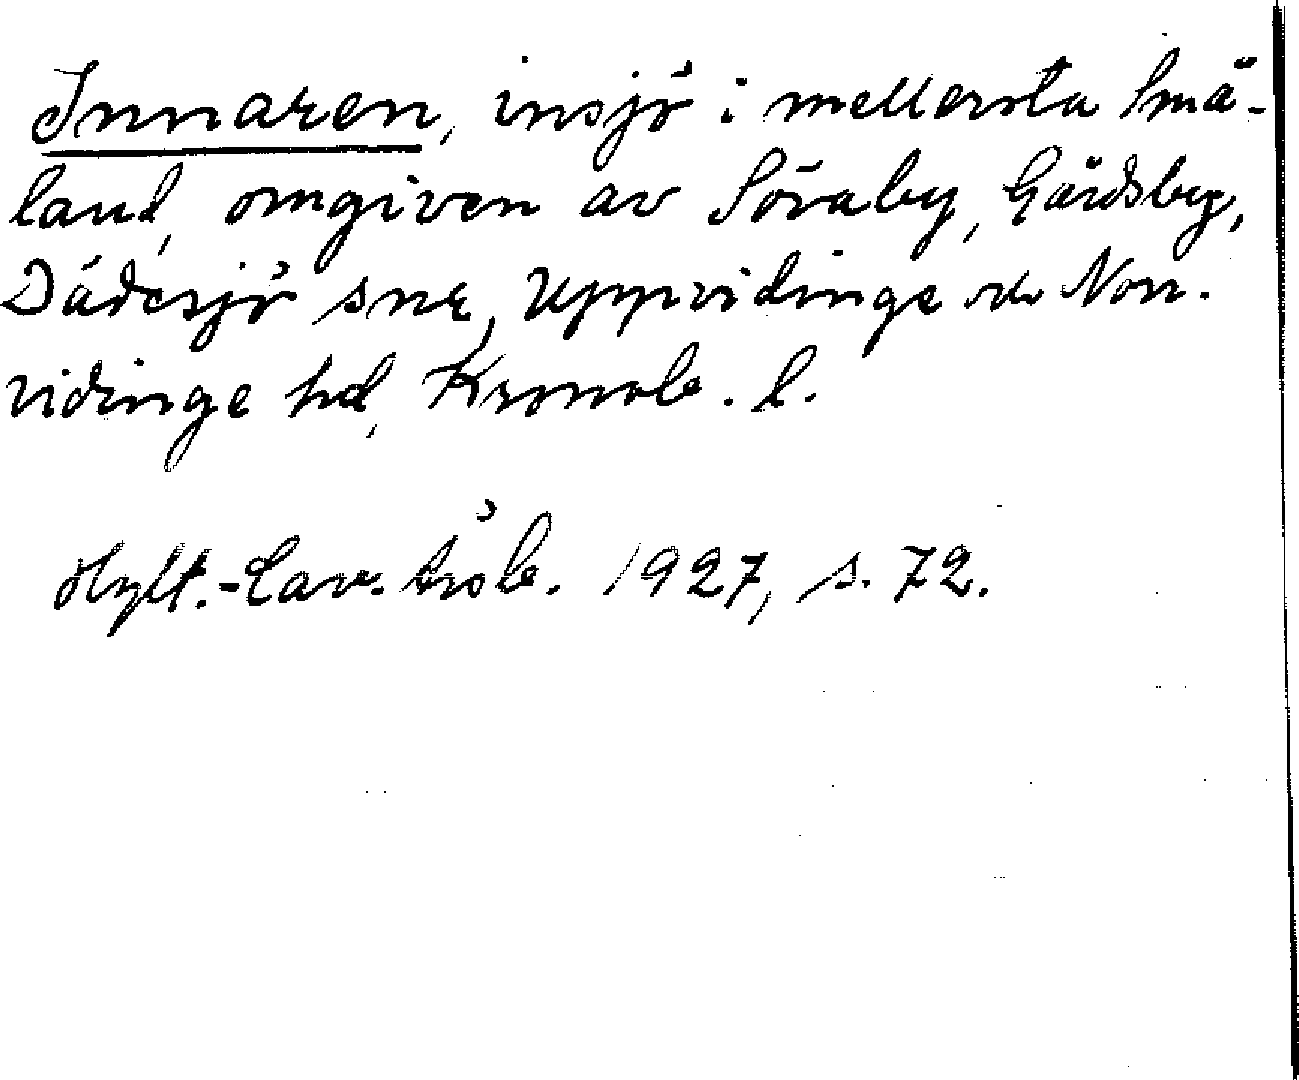 Innaren, insjö i mellersta Små-
land, omgiven av Söraby, Gårdsby,
Dädesjö snr, Uppvidinge och Norr-
vidinge hd, Kronob. l.
Hylt.-Cav. 1927, s. 72.